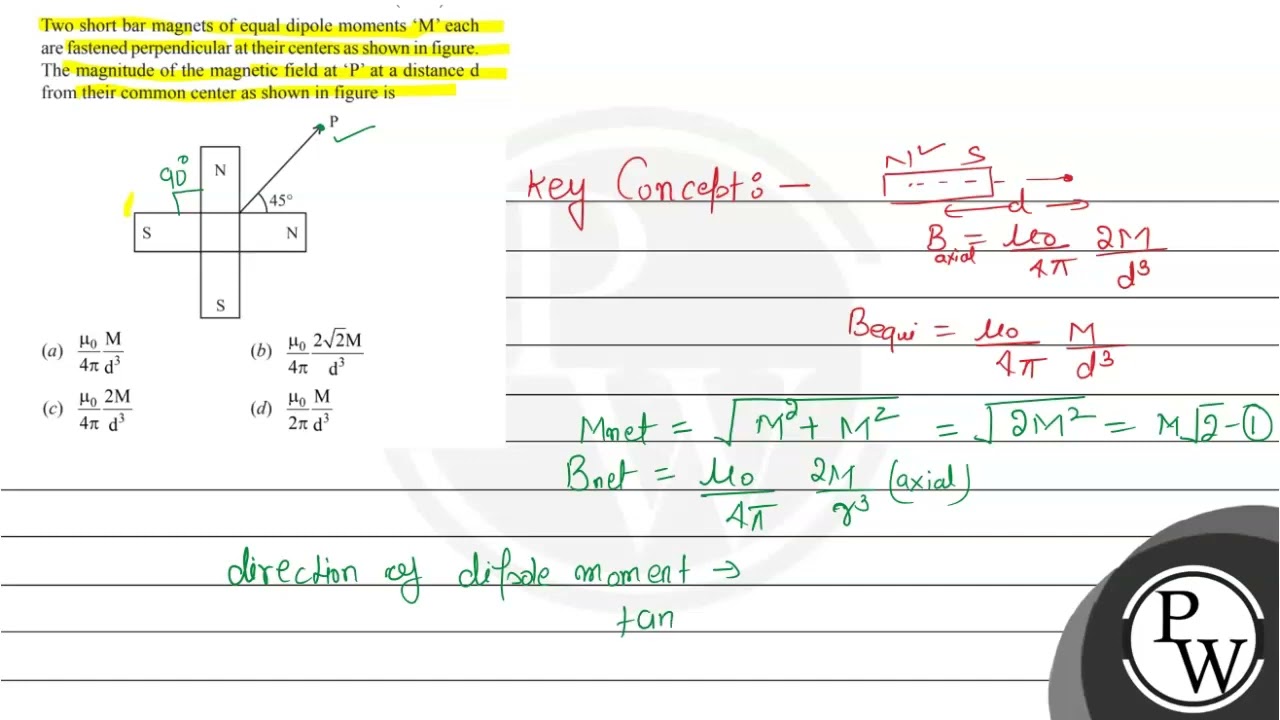 Two short bar magnets of equal dipole moments ‘M’ each
are fastened perpendicular at their centers as shown in figure.
The magnitude of the magnetic field at ‘P’ at a distance d
from their common center as shown in figure is
P
90°
N
45°
S
N
S
(a) μ₀/4π M/d³
(b) μ₀/4π 2√2M/d³
(c) μ₀/4π 2M/d³
(d) μ₀/2π M/d³
Key Concept:-
N S
d
B axial = μ₀/4π 2M/d³
Bequi = μ₀/4π M/d³
Mnet = √M²+M² = √2M² = M√2 - ①
Bnet = μ₀/4π 2M/r³ (axial)
direction of dipole moment →
tan
PW
PW